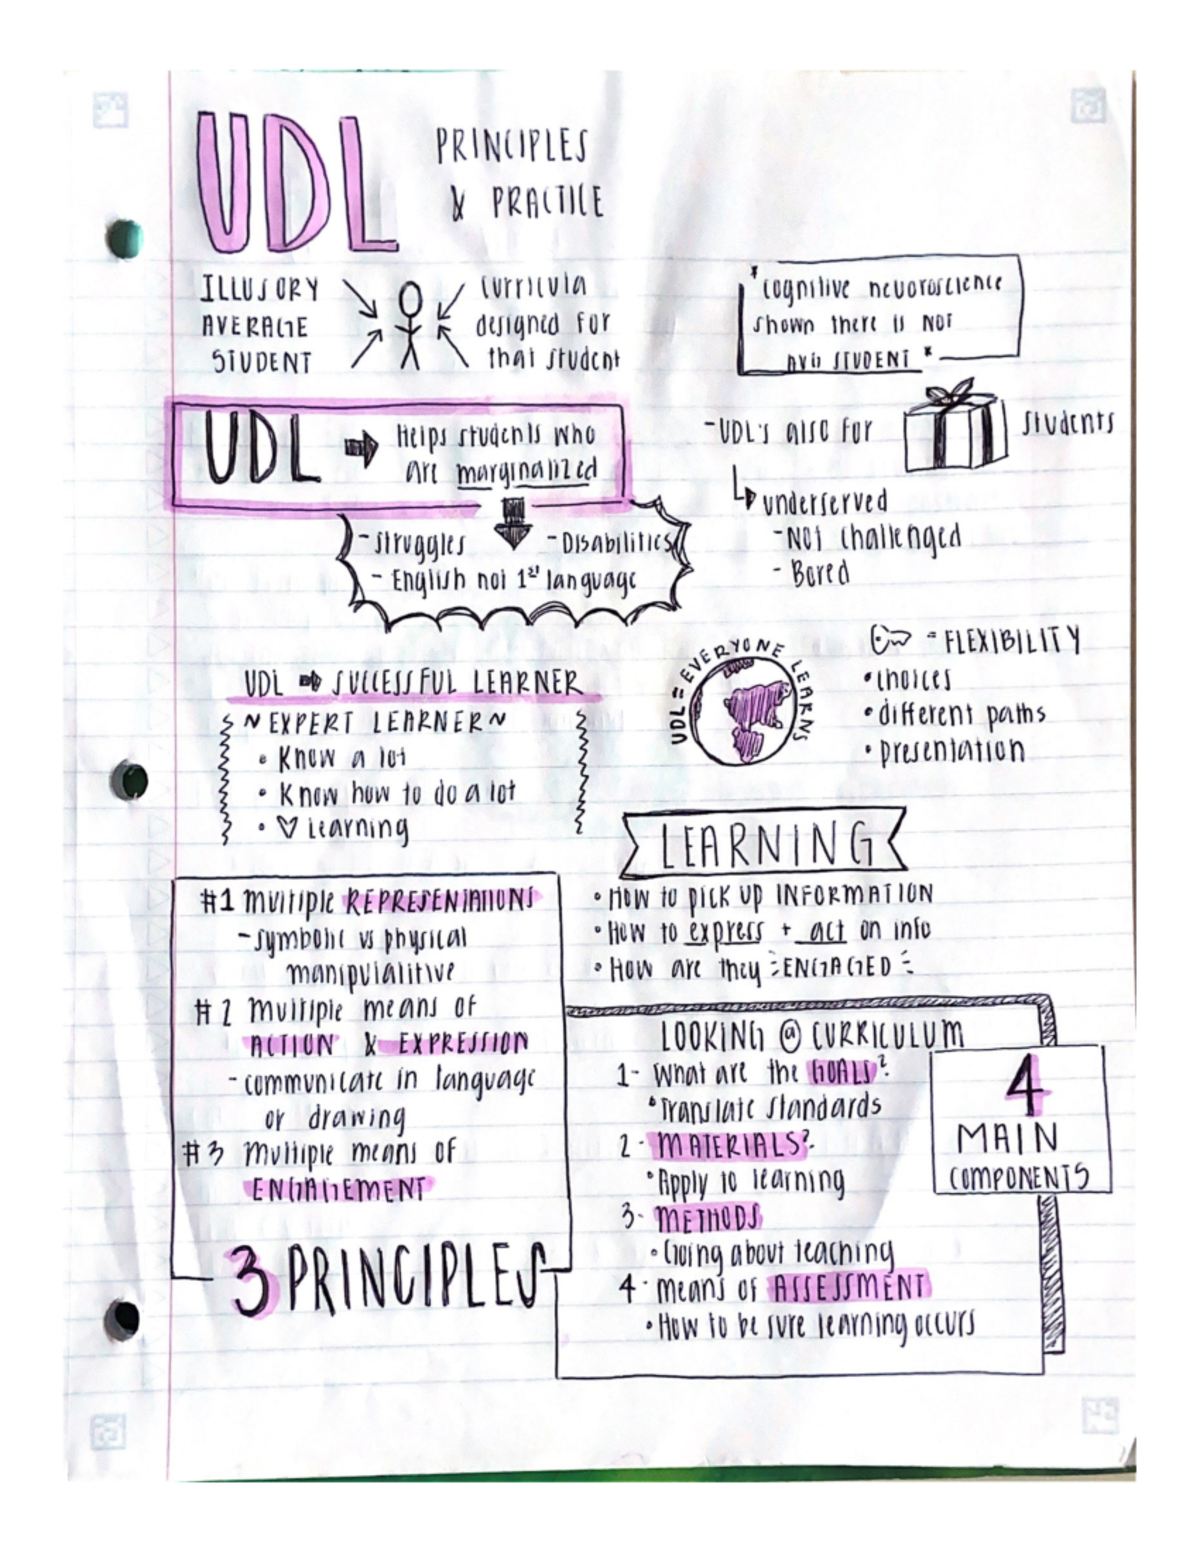 UDL
PRINCIPLES
& PRACTICE
ILLUSORY
AVERAGE
STUDENT
curricula
designed for
that student
*cognitive neuoroscience
shown there is NOT
AVG STUDENT *
UDL
Helps students who
are marginalized
- struggles
- Disabilities
- English not 1st language
- UDL's also for
students
underserved
- Not challenged
- Bored
UDL → SUCCESSFUL LEARNER
~ EXPERT LEARNER ~
• Know a lot
• Know how to do a lot
• ♡ Learning
UDL = EVERYONE LEARNS
= FLEXIBILITY
• choices
• different paths
• presentation
LEARNING
• How to pick up INFORMATION
• How to express + act on info
• How are they ENGAGED
#1 multiple REPRESENTATIONS
- symbolic vs physical
manipulalitive
#2 multiple means of
ACTION & EXPRESSION
- communicate in language
or drawing
#3 Multiple means of
ENGAGEMENT
3 PRINCIPLES
LOOKING @ CURRICULUM
1- What are the GOALS?
• Translate standards
2- MATERIALS?
• Apply to learning
3- METHODS
• Going about teaching
4- means of ASSESSMENT
• How to be sure learning occurs
4
MAIN
COMPONENTS